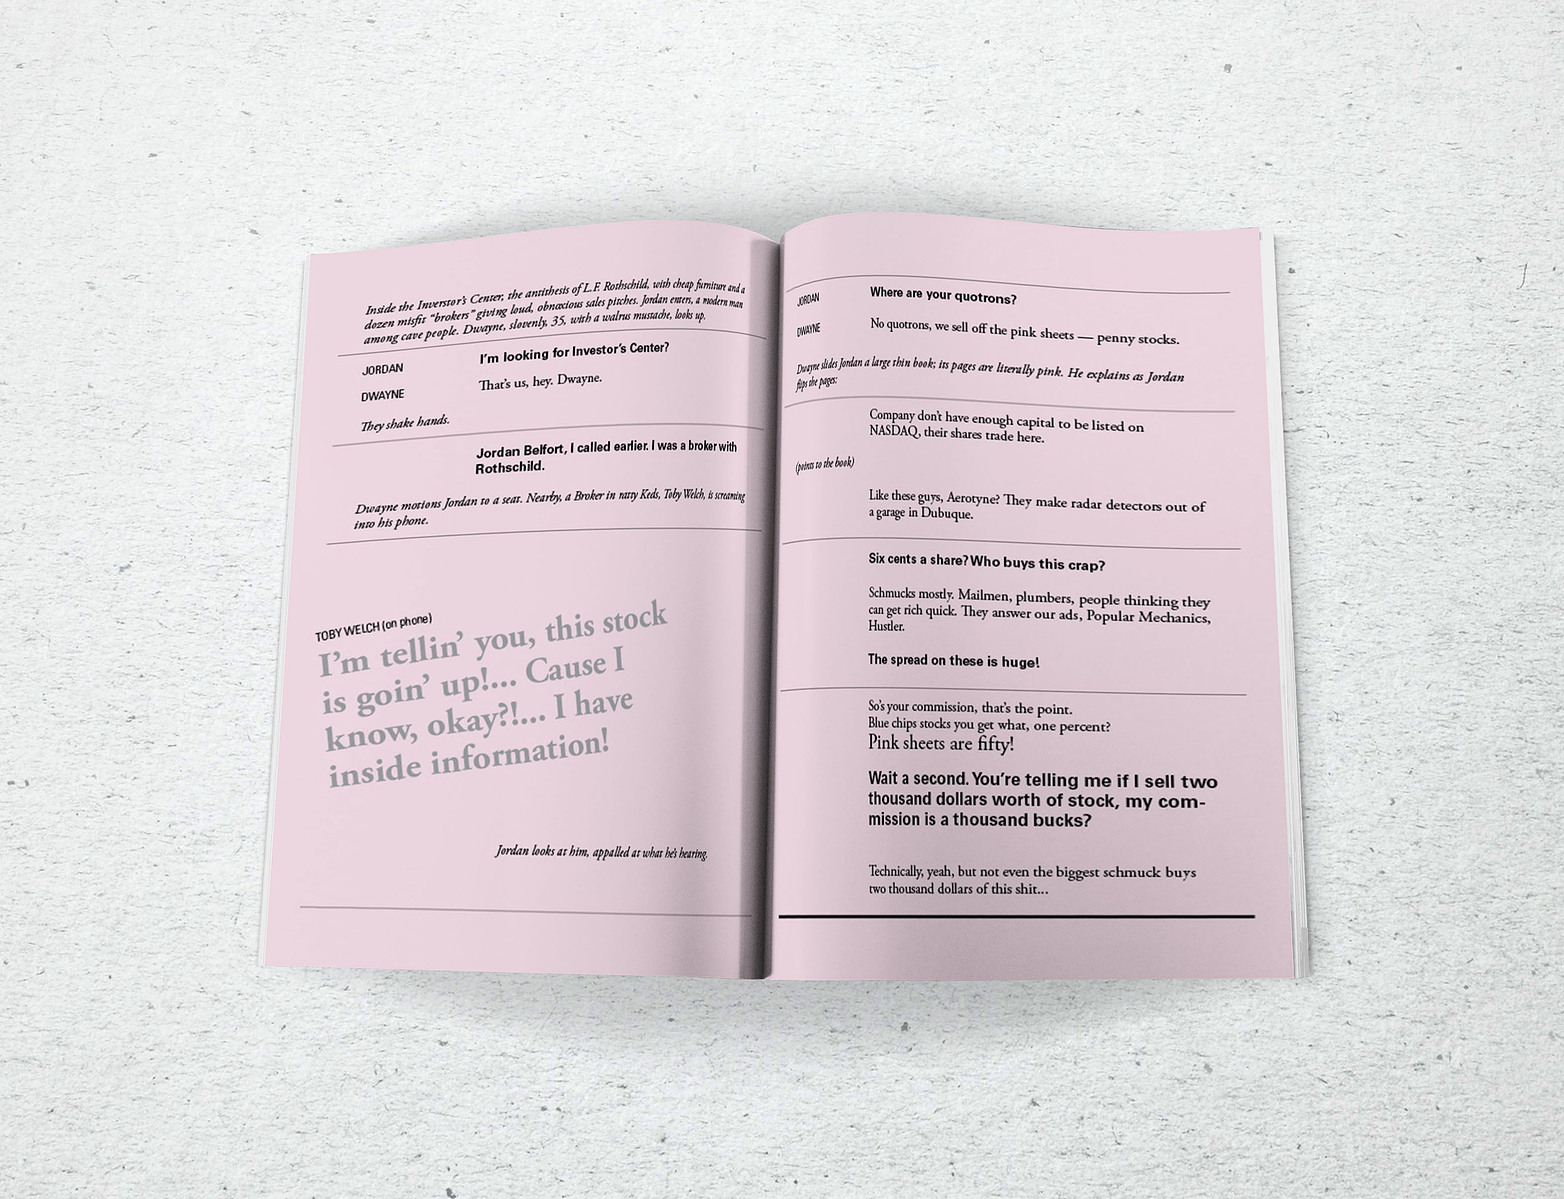 Inside the Inverstor's Center, the antithesis of L.F. Rothschild, with cheap furniture and a
dozen misfit "brokers" giving loud, obnoxious sales pitches. Jordan enters, a modern man
among cave people. Dwayne, slovenly, 35, with a walrus mustache, looks up.
JORDAN
I'm looking for Investor's Center?
DWAYNE
That's us, hey. Dwayne.
They shake hands.
Jordan Belfort, I called earlier. I was a broker with
Rothschild.
Dwayne motions Jordan to a seat. Nearby, a Broker in ratty Keds, Toby Welch, is screaming
into his phone.
TOBY WELCH (on phone)
I'm tellin' you, this stock
is goin' up!... Cause I
know, okay?!... I have
inside information!
Jordan looks at him, appalled at what he's hearing.
JORDAN
Where are your quotrons?
DWAYNE
No quotrons, we sell off the pink sheets — penny stocks.
Dwayne slides Jordan a large thin book; its pages are literally pink. He explains as Jordan
flips the pages:
Company don't have enough capital to be listed on
NASDAQ, their shares trade here.
(points to the book)
Like these guys, Aerotyne? They make radar detectors out of
a garage in Dubuque.
Six cents a share? Who buys this crap?
Schmucks mostly. Mailmen, plumbers, people thinking they
can get rich quick. They answer our ads, Popular Mechanics,
Hustler.
The spread on these is huge!
So's your commission, that's the point.
Blue chips stocks you get what, one percent?
Pink sheets are fifty!
Wait a second. You're telling me if I sell two
thousand dollars worth of stock, my com-
mission is a thousand bucks?
Technically, yeah, but not even the biggest schmuck buys
two thousand dollars of this shit...